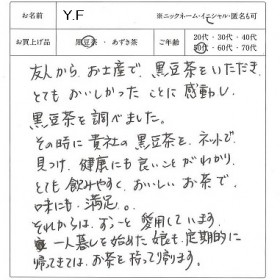 お名前 Y.F ※ニックネーム・イニシャル・匿名も可
お買上げ品 黒豆茶・あずき茶 ご年齢 20代・30代・40代
50代・60代・70代
友人から、お土産で、黒豆茶をいただき、
とてもおいしかったことに感動し、
黒豆茶を調べました。
その時に貴社の黒豆茶を、ネットで
見つけ、健康にも良いことがわかり、
とても飲みやすく、おいしいお茶で、
味にも、満足。
それからは、ずーっと愛用しています。
一人暮しを始めた娘も、定期的に
帰ってきては、お茶を持って行ります。